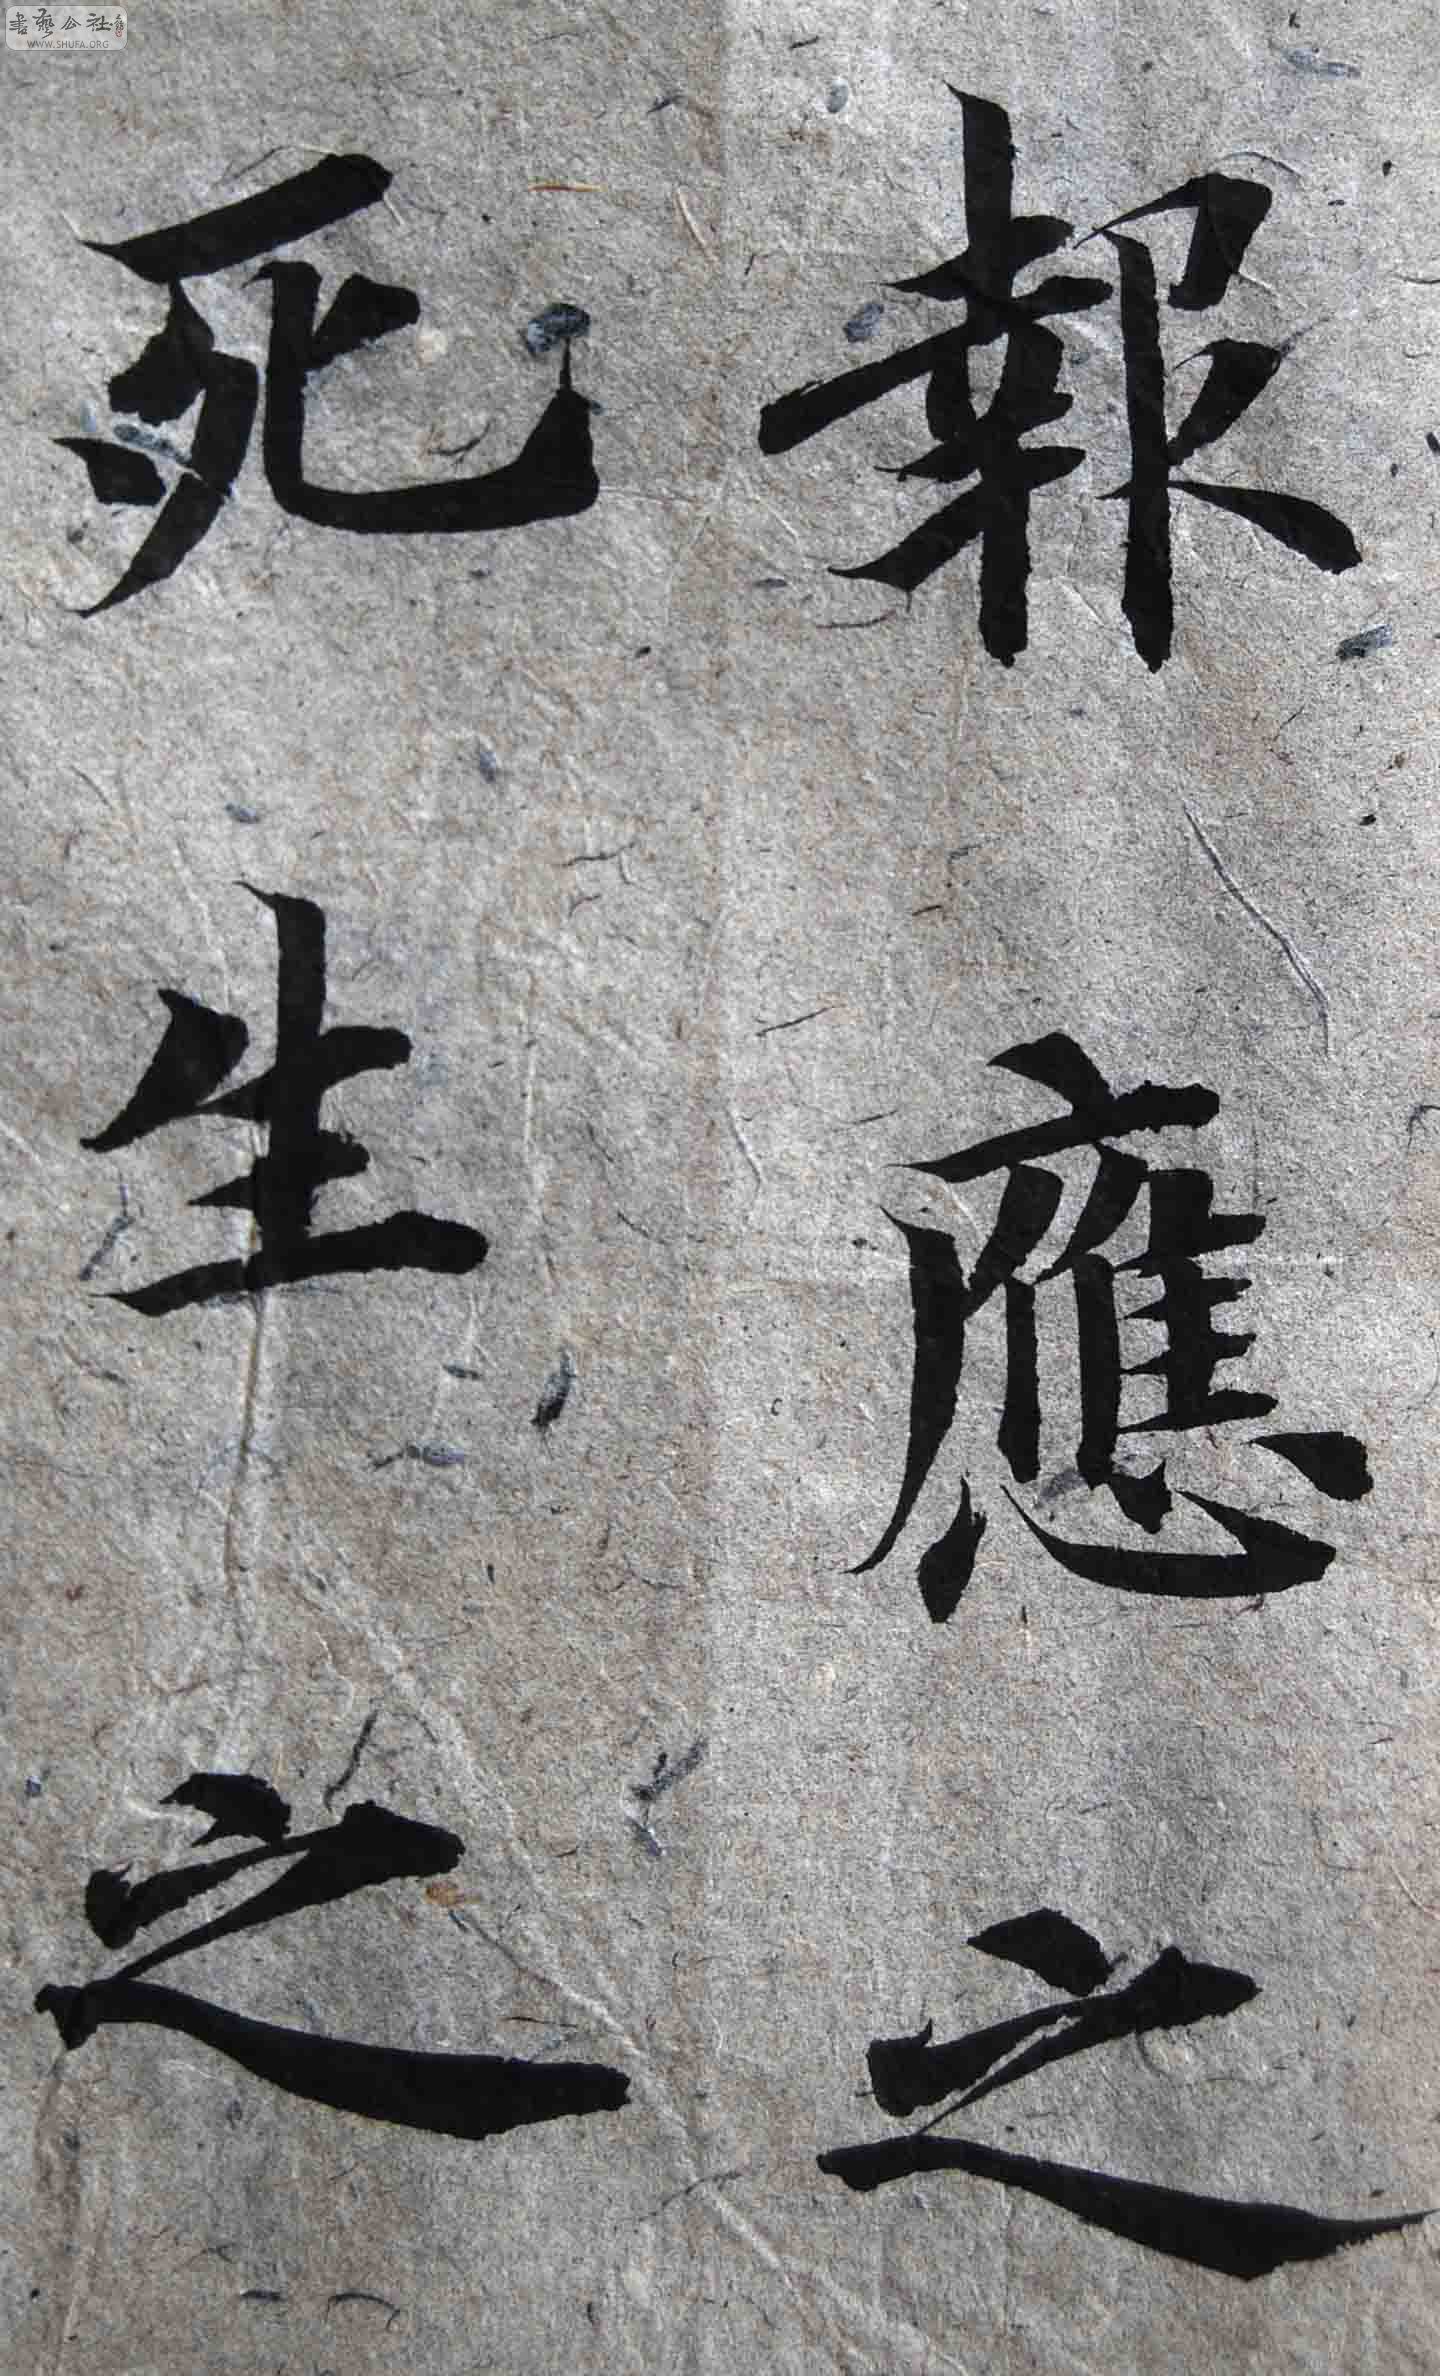 報應之
死生之
書藝公社
WWW.SHUFA.ORG